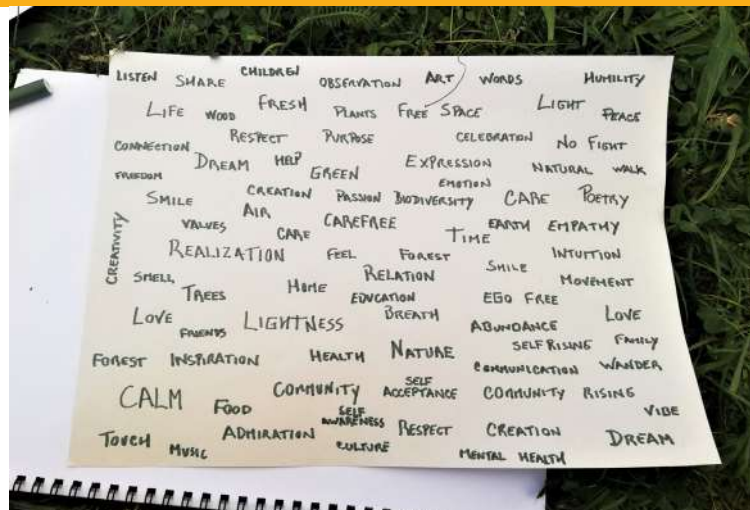 LISTEN SHARE CHILDREN OBSERVATION ART WORDS HUMILITY
LIFE WOOD FRESH PLANTS FREE SPACE LIGHT PEACE
CONNECTION RESPECT PURPOSE CELEBRATION NO FIGHT
FREEDOM DREAM HELP GREEN EXPRESSION NATURAL WALK
SMILE CREATION PASSION BIODIVERSITY EMOTION CARE POETRY
CREATIVITY VALUES AIR CARE CAREFREE TIME EARTH EMPATHY
REALIZATION FEEL FOREST SMILE INTUITION
SMELL TREES HOME RELATION MOVEMENT
EDUCATION EGO FREE
LOVE FRIENDS LIGHTNESS BREATH ABUNDANCE LOVE
FOREST INSPIRATION HEALTH NATURE SELF RISING FAMILY
COMMUNICATION WANDER
CALM FOOD COMMUNITY SELF ACCEPTANCE COMMUNITY RISING
SELF AWARENESS VIBE
TOUCH MUSIC ADMIRATION CULTURE RESPECT CREATION DREAM
MENTAL HEALTH